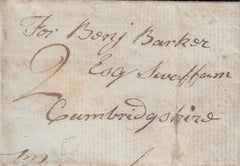 For Benj Barker
2 Esq Swaffam
Cambridgshire